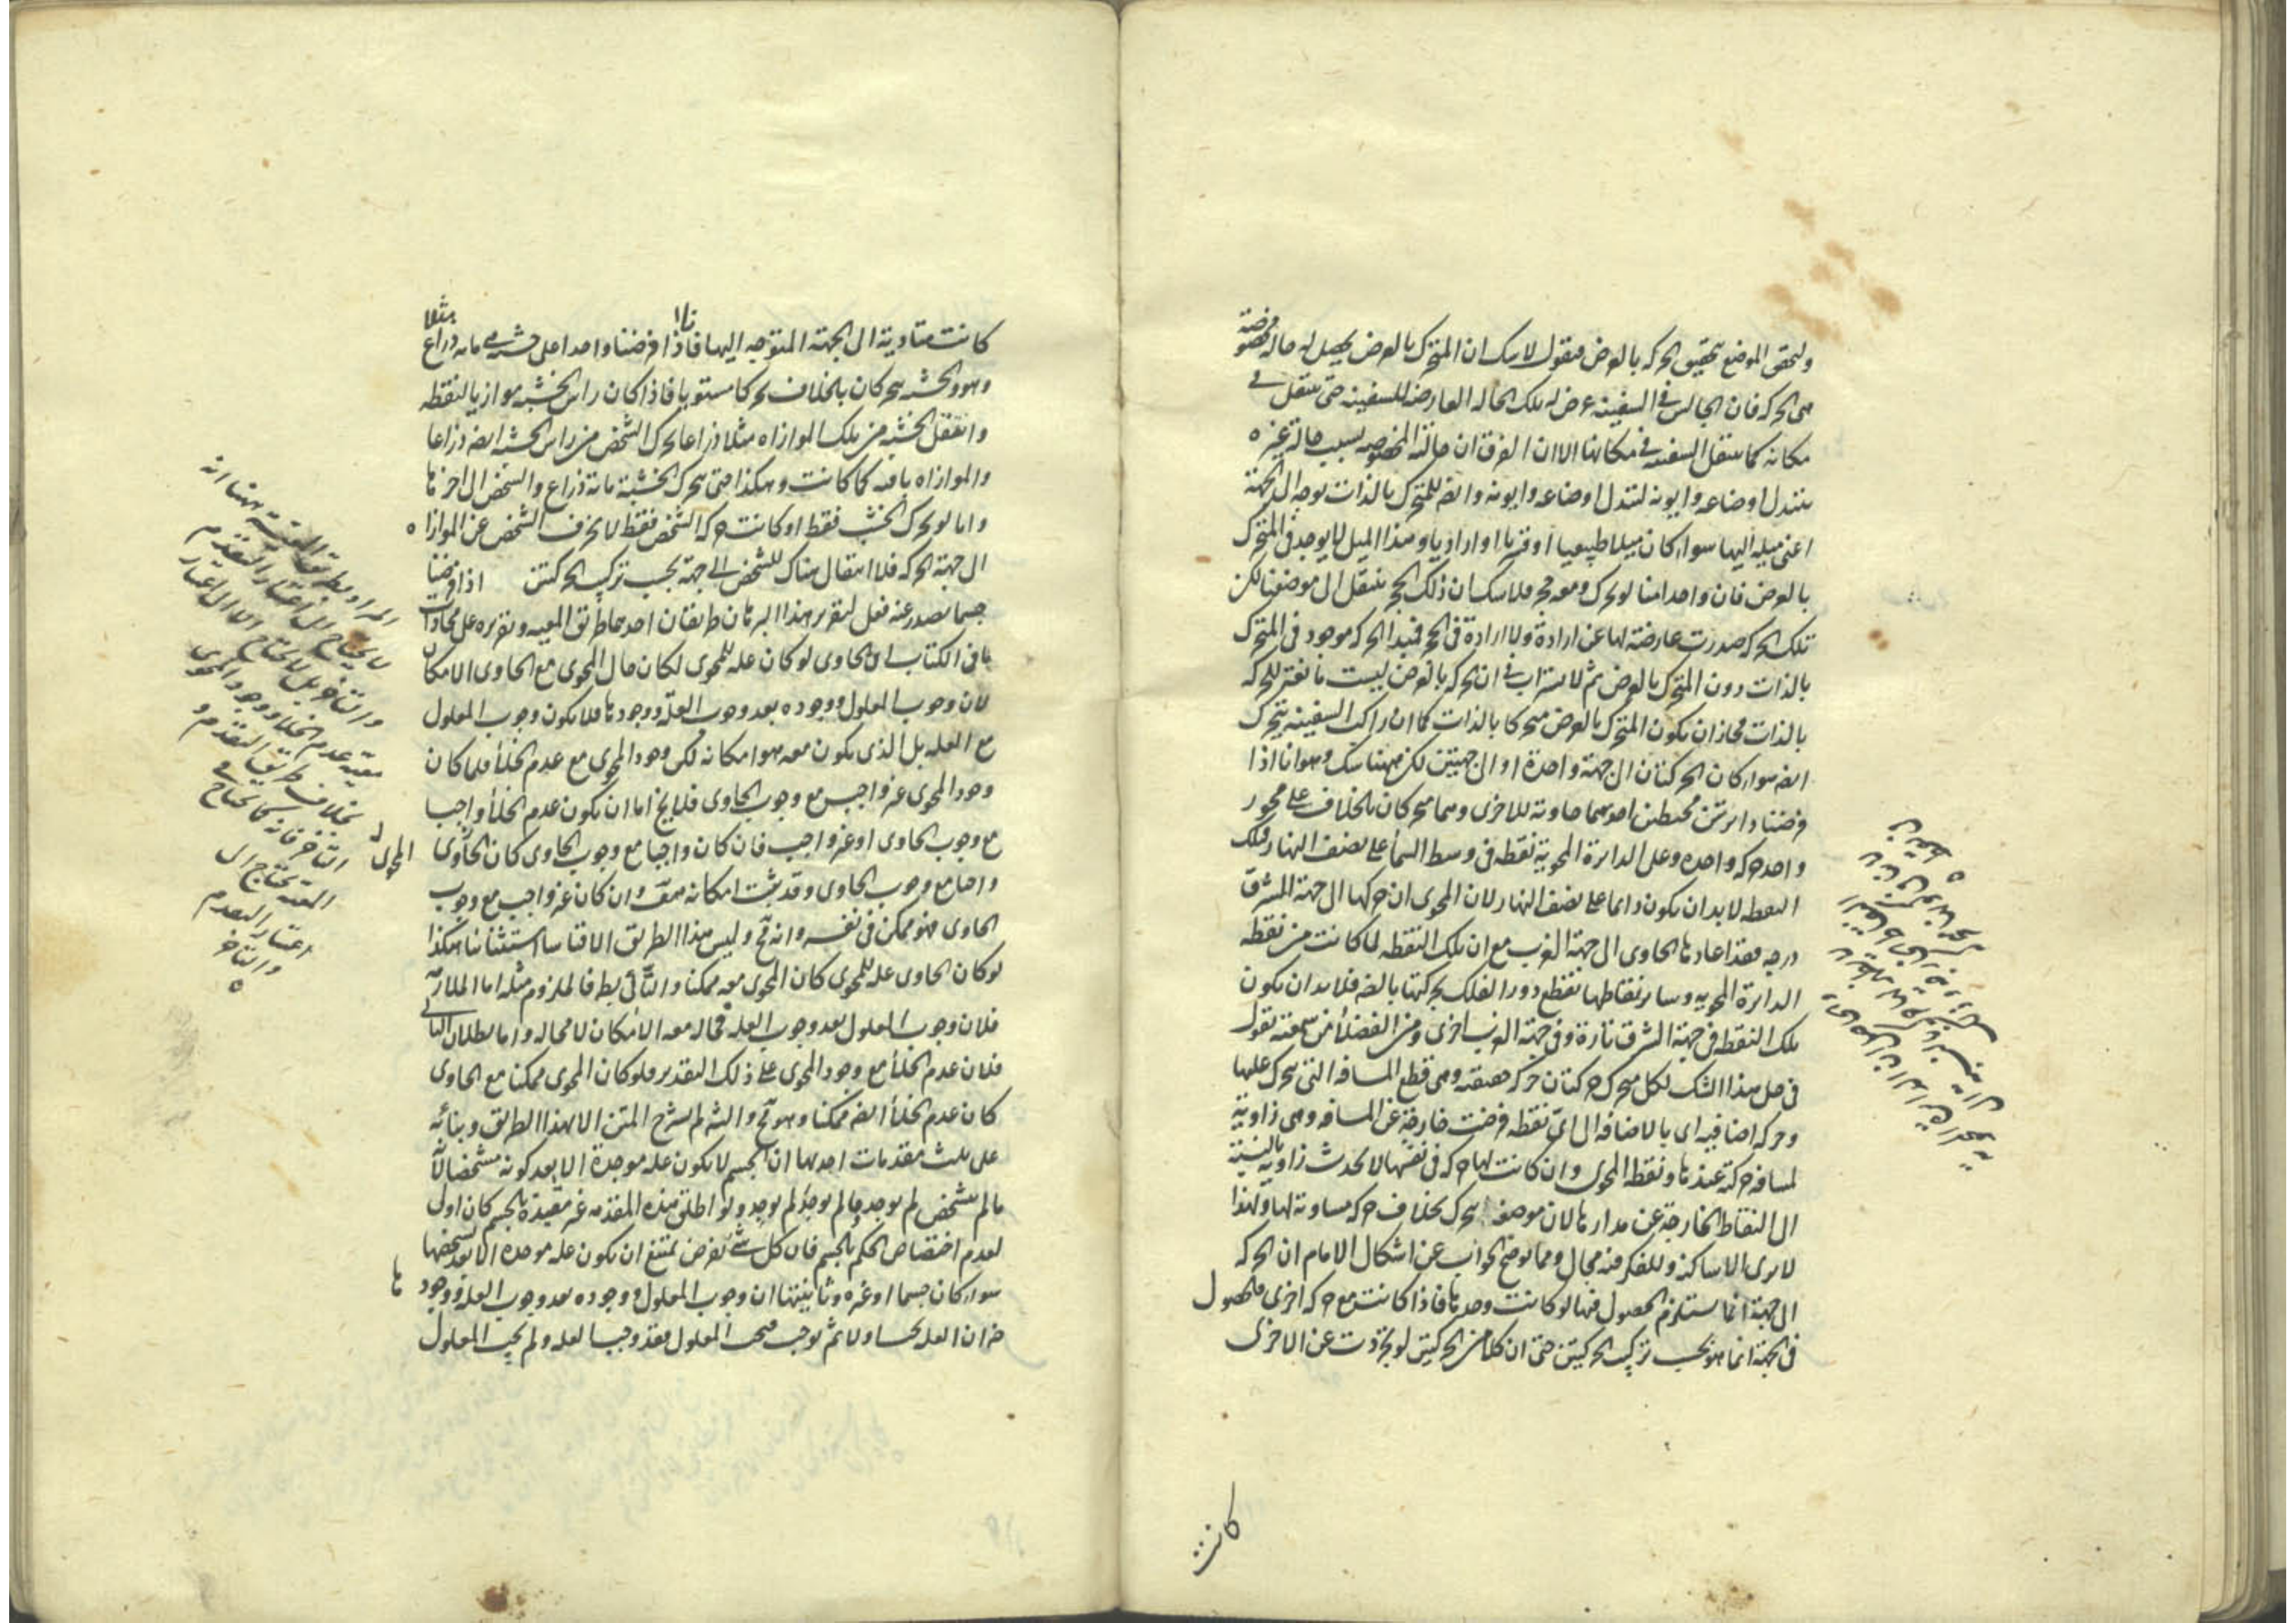 ولنحقق الموضع بتحقيق الحركة بالعرض فنقول لا شك ان المتحرك بالعرض يحصل له حالة مخصوصة
هى الحركة فان الجالس فى السفينة عرض له تلك الحالة العارضة للسفينة حتى ينتقل فى
مكانه كما ينتقل السفينة فى مكانها الا ان الفرق ان حالته المخصوصة بسبب حالة غيره
يتبدل اوضاعه وايونه لتبدل اوضاعه وايونه وايضا للمتحرك بالذات توجه الى الجهة
اعنى ميله اليها سواء كان ميلا طبيعيا او قسريا او اراديا وهذا الميل لا يوجد فى المتحرك
بالعرض فان واحدا منا لو تحرك ومعه حجر فلا شك ان ذلك الحجر ينتقل الى موضعنا لكن
تلك الحركة صدرت عارضة لها عن ارادة ولا ارادة فى الحجر فمبدا الحركة موجود فى المتحرك
بالذات دون المتحرك بالعرض ثم لا نستراب فى ان الحركة بالعرض ليست مانعة للحركة
بالذات فجاز ان يكون المتحرك بالعرض متحركا بالذات كما ان راكب السفينة يتحرك
ايضا سواء كان الحركتان الى جهة واحدة او الى جهتين لكن ههنا شك وهو انا اذا
فرضنا دائرتين محيطتين احديهما حاوية للاخرى وهما متحركتان بالخلاف على محور
واحد حركة واحدة وعلى الدائرة المحوية نقطة فى وسط السماء على نصف النهار فتلك
النقطة لا بد ان يكون دائما على نصف النهار لان المحوى ان حركها الى جهة المشرق
درجة فقد اعادها الحاوى الى جهة الغرب مع ان تلك النقطة لما كانت من نقطة
الدائرة المحوية وسائر نقاطها تقطع دور الفلك بحركتها بالضرورة فلا بد ان يكون
تلك النقطة فى جهة الشرق تارة وفى جهة الغرب اخرى ومن الفضلاء من سمعته يقول
فى حل هذا الشك لكل متحرك حركتان حركة حقيقية وهى قطع المسافة التى يتحرك عليها
وحركة اضافية اى بالاضافة الى اى نقطة فرضت خارجة عن المسافة وهى زاوية
لمسافة حركته عندها ونقطة المحوى وان كانت لها حركة فى نفسها لا تحدث زاوية بالنسبة
الى النقاط الخارجة عن مدارها لان موضعه يتحرك بخلاف حركة مساوية لها ولهذا
لا يرى الا ساكنة وللفكر فيه مجال ومما يوضح الجواب عن اشكال الامام ان الحركة
الى جهة انما يستلزم الحصول فيها لو كانت وحدها فاذا كانت مع حركة اخرى فالحصول
فى الجهة انما هو بحسب تركيب الحركتين حتى ان كلا من الحركتين لو تجردت عن الاخرى
كانت
كانت متادية الى الجهة المتوجه اليها فانا اذا فرضنا واحدا على خشبة مائة ذراع مثلا
وهو والخشبة يتحركان بالخلاف تحركا مستويا فاذا كان راس الخشبة موازيا لنقطة
وانتقل الخشبة من تلك الموازاه مثلا ذراعا تحرك الشخص من راس الخشبة ايضا ذراعا
والموازاه باقية كما كانت وهكذا حتى يتحرك الخشبة مائة ذراع والشخص الى اخرها
واما لو تحرك الخشب فقط او كانت حركة الشخص فقط لانحرف الشخص عن الموازاه
الى جهة الحركة فلا انتقال هناك للشخص الى جهة بحسب تركيب الحركتين اذا فرضنا
جسما يصدر عنه فعل لتقرير هذا البرهان طريقان احدهما طريق المعية وتقريره على محاذات
ما فى الكتاب ان الحاوى لو كان علة للمحوى لكان حال المحوى مع الحاوى الامكان
لان وجوب المعلول ووجوده بعد وجوب العلة ووجودها فلا يكون وجوب المعلول
مع العلة بل الذى يكون معه هو امكانه لكن وجود المحوى مع عدم الخلاء فلما كان
وجود المحوى غير واجب مع وجوب الحاوى فلا يخ اما ان يكون عدم الخلاء واجبا
مع وجوب الحاوى او غير واجب فان كان واجبا مع وجوب الحاوى كان المحوى
واجبا مع وجوب الحاوى وقد ثبت امكانه معه وان كان غير واجب مع وجوب
الحاوى فهو ممكن فى نفسه وانه مح وليس هذا الطريق الا قياسا استثنائيا هكذا
لو كان الحاوى علة للمحوى كان المحوى معه ممكنا والتالى بط فالملزوم مثله اما الملازمة
فلان وجوب المعلول بعد وجوب العلة فحاله معه الامكان لا محاله واما بطلان التالى
فلان عدم الخلاء مع وجود المحوى على ذلك التقدير فلو كان المحوى ممكنا مع الحاوى
كان عدم الخلاء ايضا ممكنا وهو مح والشه لم يشرح المتن الا بهذا الطريق وبنائه
على ثلث مقدمات احدها ان الجسم لا يكون علة موجدة الا بعد كونه مشخصا لان
ما لم يتشخص لم يوجد وما لم يوجد لم يوجد ولو اطلق هذه المقدمة غير مقيدة بالجسم كان اولى
لعدم اختصاص الحكم بالجسم فان كل شئ يفرض يمتنع ان يكون علة موجدة الا بعد تشخصها
سواء كان جسما او غيره وثانيتها ان وجوب المعلول ووجوده بعد وجوب العلة ووجودها
ضرورة ان العلة تجب اولا ثم يوجب فيجب المعلول فقد وجب العلة ولم يجب المعلول
المراد بطريق المعية ههنا انه
لا يحتاج الى اعتبار التقدم
والتاخر بل لا يحتاج الا الى اعتبار
معية عدم الخلاء ووجود المحوى
بخلاف طريق التقدم و
التاخر فانه كما يحتاج الى
المعية يحتاج الى
اعتبار التقدم
والتاخر